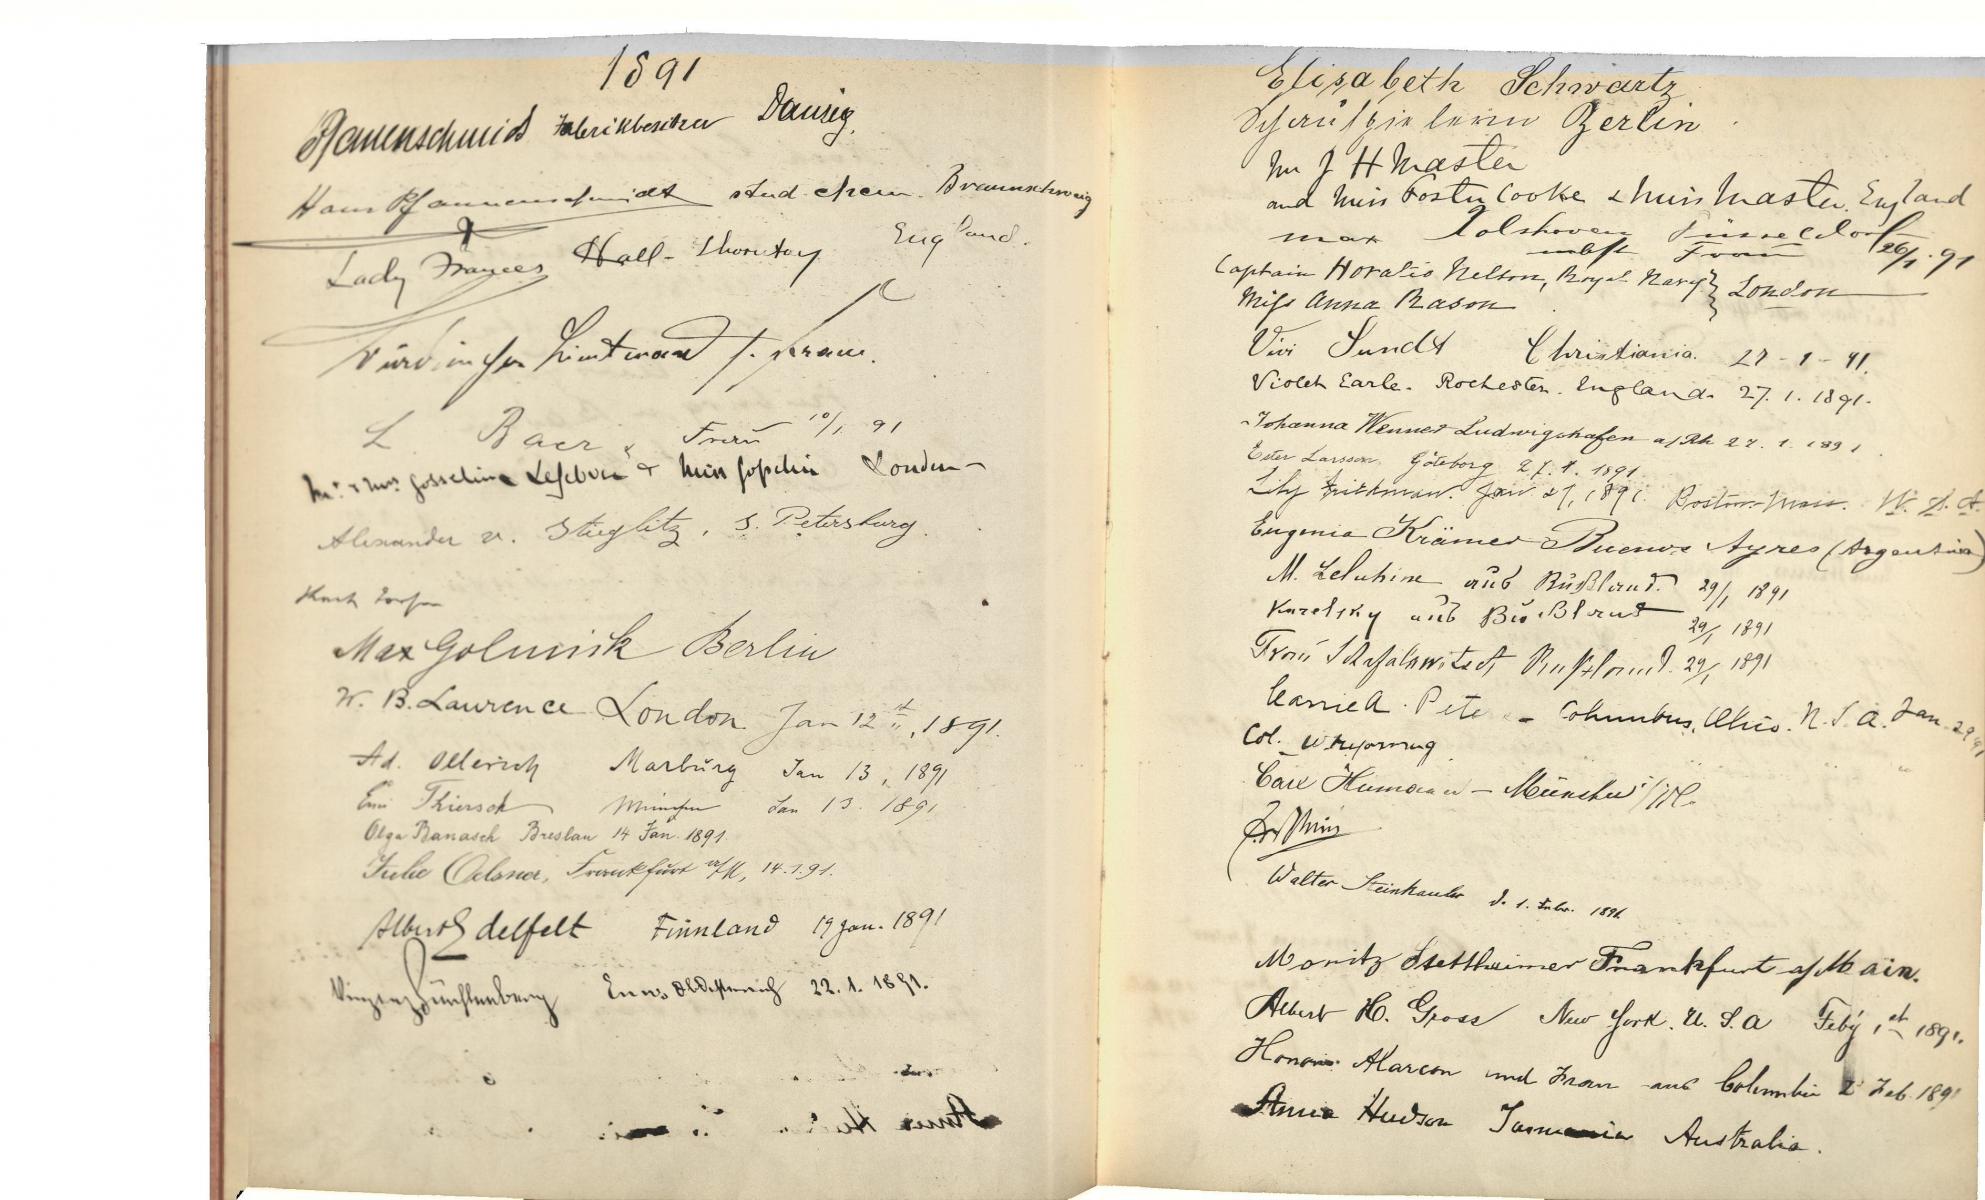 1891
Pfannenschmidt Fabrikbesitzer Danzig.
Hans Pfannenschmidt stud. chem. Braunschweig
Lady Frances Hall- England.
Lieutenant
L. Baer & Frau 10/1 91
Mr. & Mrs Gosselin Lefebvre & Miss Gosselin London
Alexander v. Stieglitz, S. Petersburg.
Max Golminik Berlin
W. B. Laurence London Jan 12, 1891.
Ad. Marburg Jan 13, 1891
Thiersch München Jan 13. 1891
Olga Banasch Breslau 14 Jan. 1891
Julie Oelsner, Frankfurt a/M, 14.1.91.
Albert Edelfelt Finnland 19 Jan. 1891
Enns Oböstereich 22. 1. 1891.
Elisabeth Schwartz
Schauspielerin Berlin
Mr J H Master
and Miss Foster Cooke & Miss Master. England
Max Volshoven Düsseldorf
nebst Frau 26/1. 91
Captain Horatio Nelson, Royal Navy } London
Miss Anna Rason
Vivi Sundt Christiania. 27-1-91.
Violet Earle. Rochester. England. 27. 1. 1891.
Johanna Wenner Ludwigshafen a/Rh 27. 1. 1891.
Ester Larsson Göteborg 27. 1. 1891
Lily Jan 27, 1891. Boston-Mass. U. S. A.
Eugenia Krämer Buenos Ayres (Argentina)
M. aus Rußland. 29/1 1891
Karelsky aus Rußland 29/1 1891
Frau Rußland. 29/1 1891
Carrie A. Columbus, Ohio. U. S. A. Jan. 29
Col.
Carl Humann - Münster i/W.
Walter d. 1. Febr. 1891
Moritz Stettheimer Frankfurt a/Main.
Albert H. Gross New York. U. S. A Feby 1st 1891.
Alarcon und Frau aus Columbia 2 Feb. 1891
Annie Hudson Tasmania Australia.